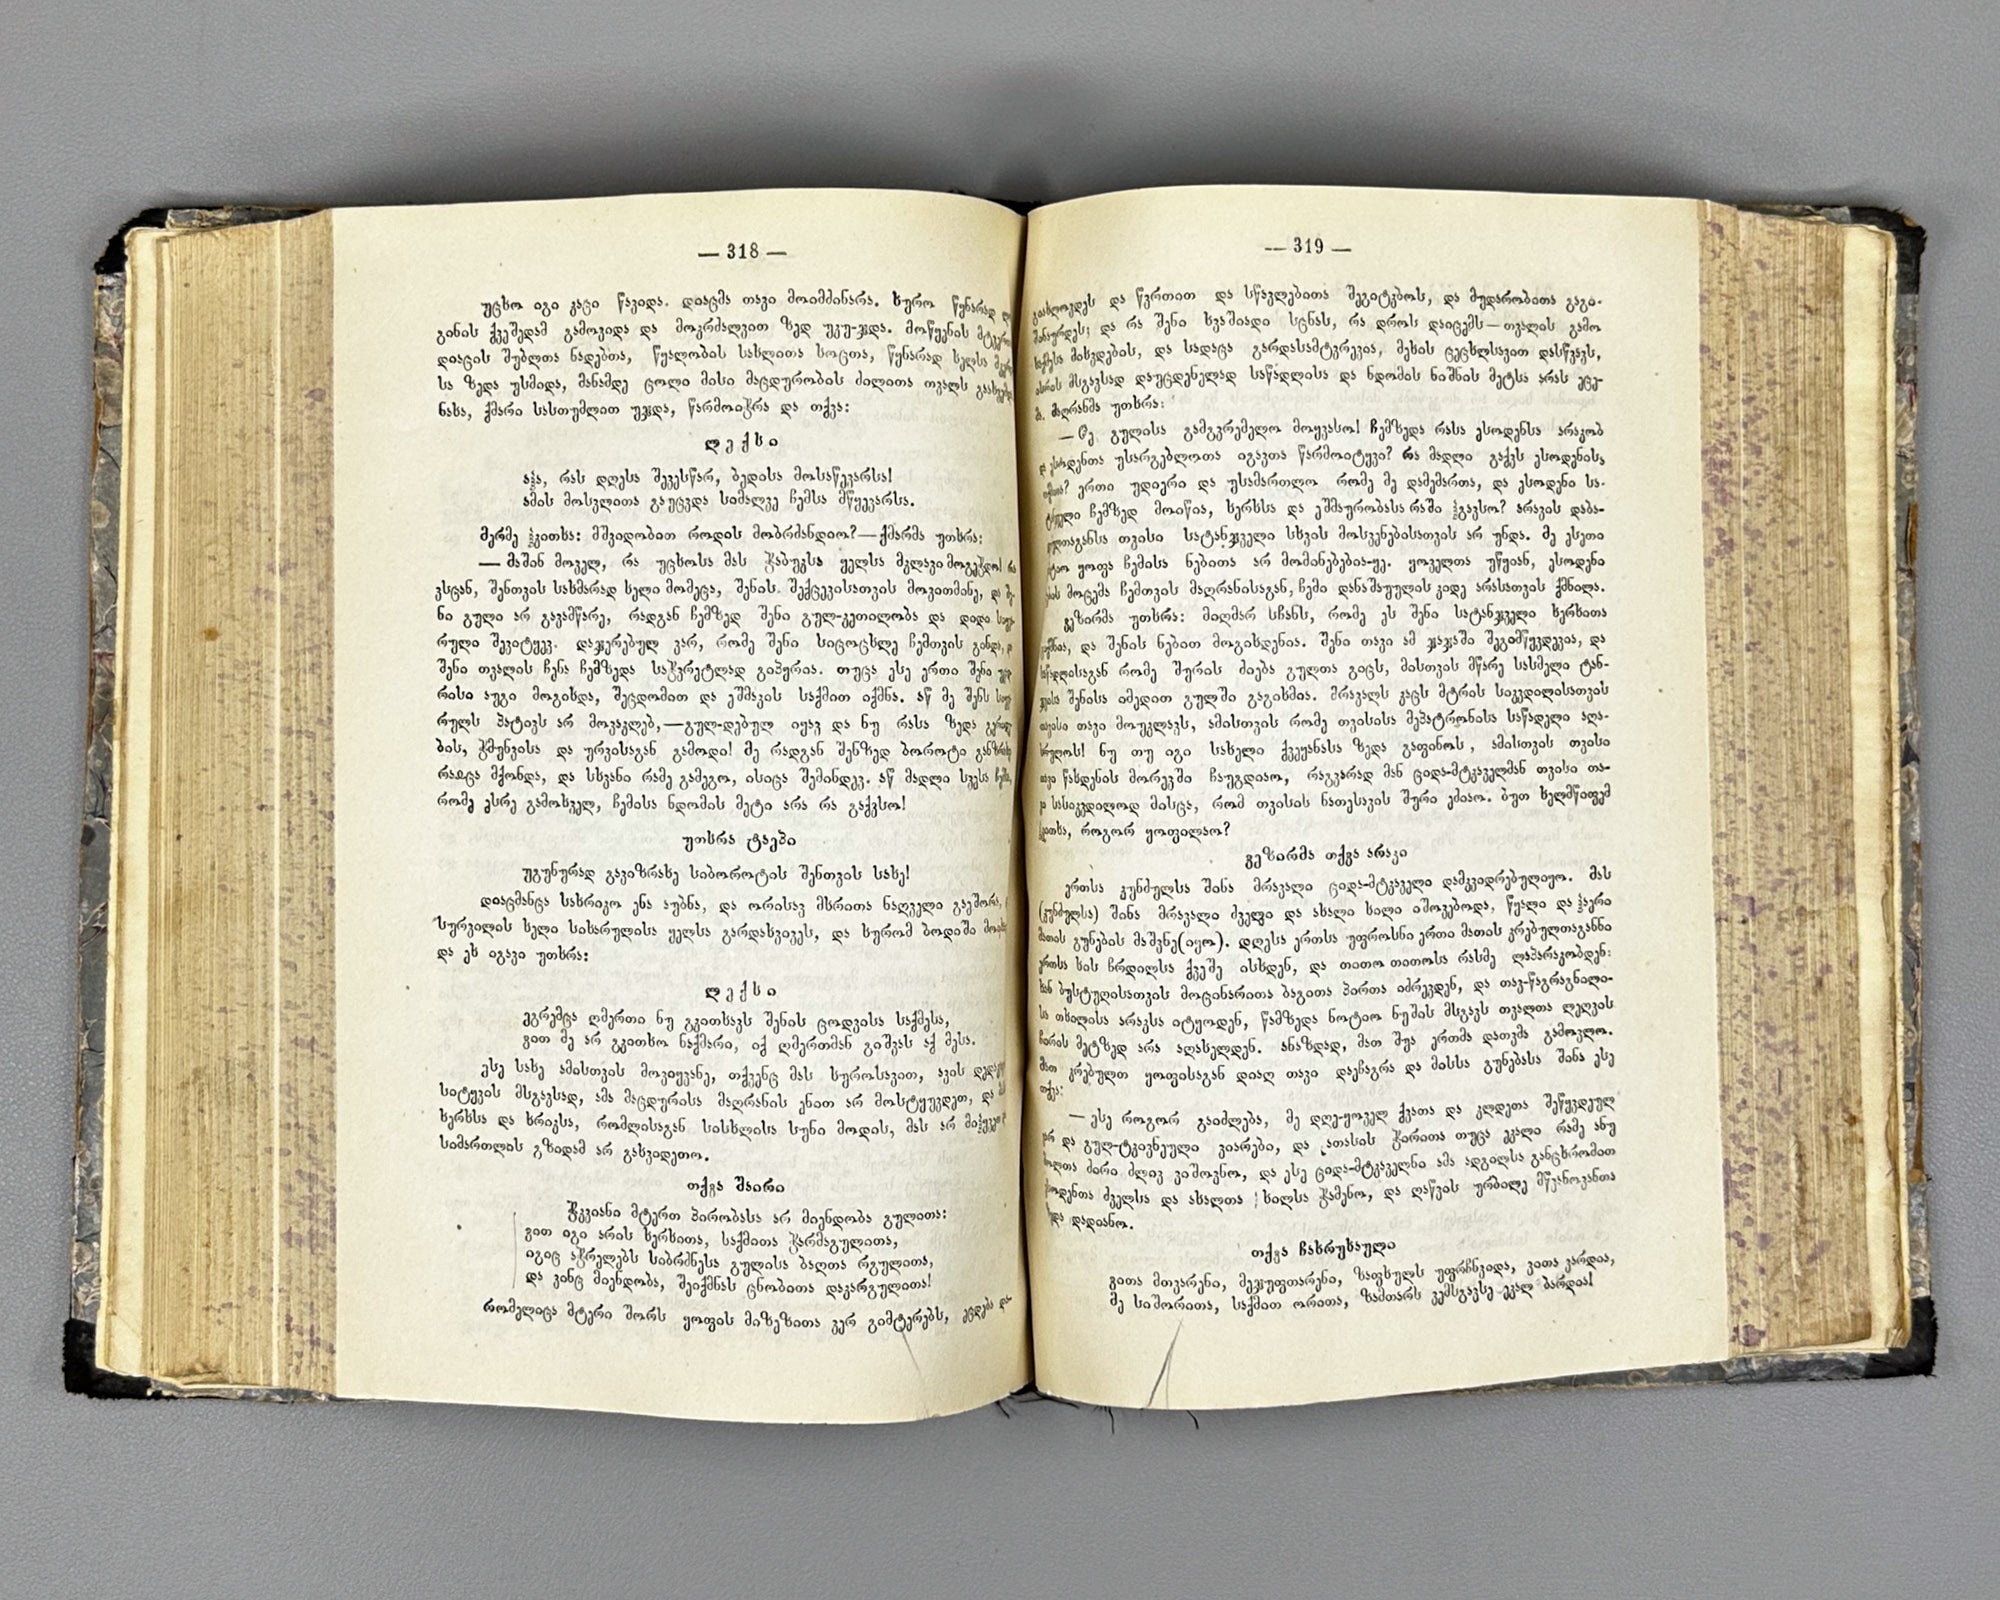 — 318 —
უცხო იგი კაცი წავიდა. დიაცმა თავი მოიმძინარა. ხურო წყნარად
გინის ქვეშედამ გამოვიდა და მოკრძალვით ზედ უკუ-ჯდა. მოწყენის მტვერი
დიაცის შუბლთა ნადებთა, წყალობის სახლითა ხოცთა, წყნარად ხელსა
სა ზედა უსმიდა, მანამდე ცოლი მისი მაცდურობის ძილითა თვალს
ნასა, ქმარი სასთუმლით უჯდა, წარმოიჭრა და თქვა:
ლექსი
აჰა, რას დღესა შევესწარ, ბედისა მოსაწევარსა!
ამის მოსვლითა გაუცვდა სიმალვე ჩემსა მწყევარსა.
მერმე ჰკითხა: მშვიდობით როდის მობრძანდიო?—ქმარმა უთხრა:
— მაშინ მოველ, რა უცხოსა მას ჭაბუკსა ყელსა მკლავი მოგეჭდო!
ვსცან, შენთვის სახმარად ხელი მომეცა, შენის შექცევისათვის მოვითმინე, და
ნი გული არ გავამწარე, რადგან ჩემზედ შენი გულ-კეთილობა და დიდი
რული შევიტყევ. დაჯერებულ ვარ, რომე შენი სიცოცხლე ჩემთვის გინდა,
შენი თვალის ჩენა ჩემზედა საჭვრეტლად გიპყრია. თუცა ესე ერთი შენი
რისი აუგი მოგიხდა, შეცდომით და ეშმაკის საქმით იქმნა. აწ მე შენს
რულს პატივს არ მოვაკლებ,—გულ-დებულ იყავ და ნუ რასა ზედა
ბის, ჭმუნვისა და ურვისაგან გამოდი! მე რადგან შენზედ ბოროტი
რაცა მქონდა, და სხვანი რამე გამეგო, ისიცა შემინდევ. აწ მადლი სვესა
რომე ესრე გამოსველ, ჩემისა ნდომის მეტი არა რა გაქვსო!
უთხრა ტაეპი
უგუნურად გავიზრახე სიბოროტის შენთვის სახე!
დიაცმანცა სახრიკო ენა აუბნა, და ორისავ მხრითა ნაღველი გაეშორა,
სურვილის ხელი სიხარულისა ყელსა გარდასვივეს, და ხურომ ბოდიში
და ეს იგავი უთხრა:
ლექსი
ეგრემცა ღმერთი ნუ გკითხავს შენის ცოდვისა საქმესა,
ვით მე არ გკითხო ნაქმარი, იქ ღმერთმან გიშვას აქ მესა.
ესე სახე ამისთვის მოვიყვანე, თქვენც მას ხუროსავით, ავის
სიტყვის მსგავსად, ამა მაცდურისა მაღრანის ენით არ მოსტყუვდეთ, და
ხერხსა და ხრიკსა, რომლისაგან სისხლისა სუნი მოდის, მას არ
სიმართლის გზიდამ არ გახვიდეთო.
თქვა შაირი
ჭკვიანი მტერთ პირობასა არ მიენდობა გულითა:
ვით იგი არის ხერხითა, საქმითა ჭარმაგულითა,
იგიც აჭრელებს სიბრძნესა გულისა ბაღთა რგულითა,
და ვინც მიენდობა, შეიქმნას ცნობითა დაკარგულითა!
რომელიცა მტერი შორს ყოფის მიზეზითა ვერ გიმტერებს, ეცდება
— 319 —
და წვრთით და სწავლებითა შეგიტკბოს, და მუდარობითა გაგი-
შინაურდეს; და რა შენი სვაშიადი სცნას, რა დროს დაიცემს—თვალის გამო
საქმესა მისვდების, და სადაცა გარდასამტვრევია, მეხის ცეცხლსავით დასწვავს,
ისრის მსგავსად დაუცდენელად საწადლისა და ნდომის ნიშნის მეტსა არას ეცე-
მაღრანმა უთხრა:
—ჵე გულისა გამგვრემელო მოყვასო! ჩემზედა რასა ესოდენსა არაკობ
და ესოდენთა უსარგებლოთა იგავთა წარმოიტყვი? რა მადლი გაქვს ესოდენისა
ერთი უდიერი და უსამართლო რომე მე დამემართა, და ესოდენი სა-
ტანჯველი ჩემზედ მოიწია, ხერხსა და ეშმაურობასა რაში ჰგავსო? არავის დაბა-
თვისი სატანჯველი სხვის მოსვენებისათვის არ უნდა. მე ესეთი
ყოფა ჩემისა ნებითა არ მომინებებია-ყე. ყოველთა უწყიან, ესოდენი
მოცემა ჩემთვის მაღრანისაგან, ჩემი დანაშაუულის კიდე არასათვის ქმნილა.
ვეზირმა უთხრა: მიღმარ სჩანს, რომე ეს შენი სატანჯველი ხერხითა
და შენის ნებით მოგისდენია. შენი თავი ამ ჯაჯაში შეგიმწყვდევია, და
რომე შურის ძიება გულთა გიცს, მისთვის მწარე სასმელი ტან-
შენისა იმედით გულში გაგისმია. მრავალს კაცს მტრის სიკვდილისათვის
თავი მოუკლავს, ამისთვის რომე თვისისა მეპატრონისა საწადელი აღა-
ნუ თუ იგი სახელი ქვეყანასა ზედა გაფინოს, ამისთვის თვისი
თავი წახდენის მორევში ჩაუგდიაო, რაგვარად მან ციდა-მტკაველმან თვისი თა-
ვი სასიკვდილოდ მისცა, რომ თვისის ნათესავის შური ეძიაო. ბუთ ხელმწიფემ
ჰკითხა, როგორ ყოფილაო?
ვეზირმა თქვა არაკი
ერთსა კუნძულსა შინა მრავალი ციდა-მტკაველი დამკვიდრებულიყო. მას
(კუნძულსა) შინა მრავალი ძველი და ახალი ხილი იშოვებოდა, წყალი და ჰაერი
მათის გუნების მაშვნე(იყო). დღესა ერთსა უფროსნი ერთი მათის კრებულთაგანნი
ერთსა ხის ჩრდილსა ქვეშე ისხდენ, და თითო თითოსა რასმე ლაპარაკობდენ:
ბუსტუღისათვის მოცინარითა ბაგითა პირთა იძრევდენ, და თავ-წაგრაგნილი-
სა თხილისა არაკსა იტყოდენ, წამზედა ნოტიო ნუშის მსგავს თვალთა ლეღვის
ჩირის მეტზედ არა აღახელდენ. ანაზდად, მათ შუა ერთმა დათვმა გამოვლო.
მათ კრებულთ ყოფისაგან დიაღ თავი დაეჩაგრა და მისსა გუნებასა შინა ესე
თქვა:
— ესე როგორ გაიძლება, მე დღე-ყოველ ქვათა და კლდეთა შეწყვდეულ
ვარ და გულ-ტკივნეული ვიარები, და ათასის ჭირითა თუცა ეკალი რამე ანუ
ძირი ძლივ ვიშოვნო, და ესე ციდა-მტკაველნი ამა ადგილსა განცხრომით
ძველსა და ახალთა ხილსა ჭამენო, და ღაწვის ურბილე მწვანოვანთა
ზედა დადიანო.
თქვა ჩახრუხაული
ვითა მთვარენი, მეჯუფთარენი, ზაფხულს უფრჩნკვიდა, ვითა ვარდია,
მე სიშორითა, საქმით ორითა, ზამთარს ვემსგავსე ეკალ ბარდია!